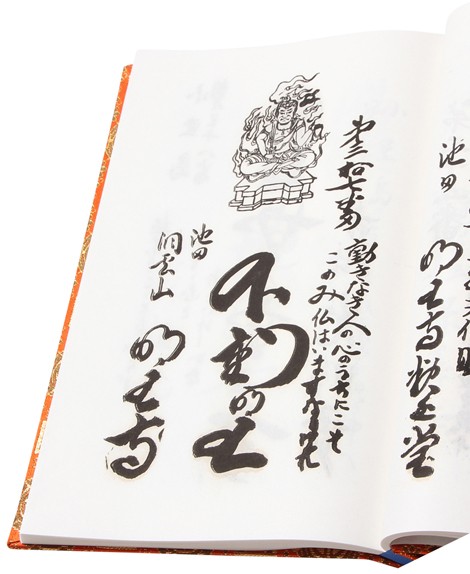 池田
明王寺
第三拾七番
動きなき人の心のうちにこそ
このみ仏はいますなりけれ
不動明王
池田
洞雲山
明王寺